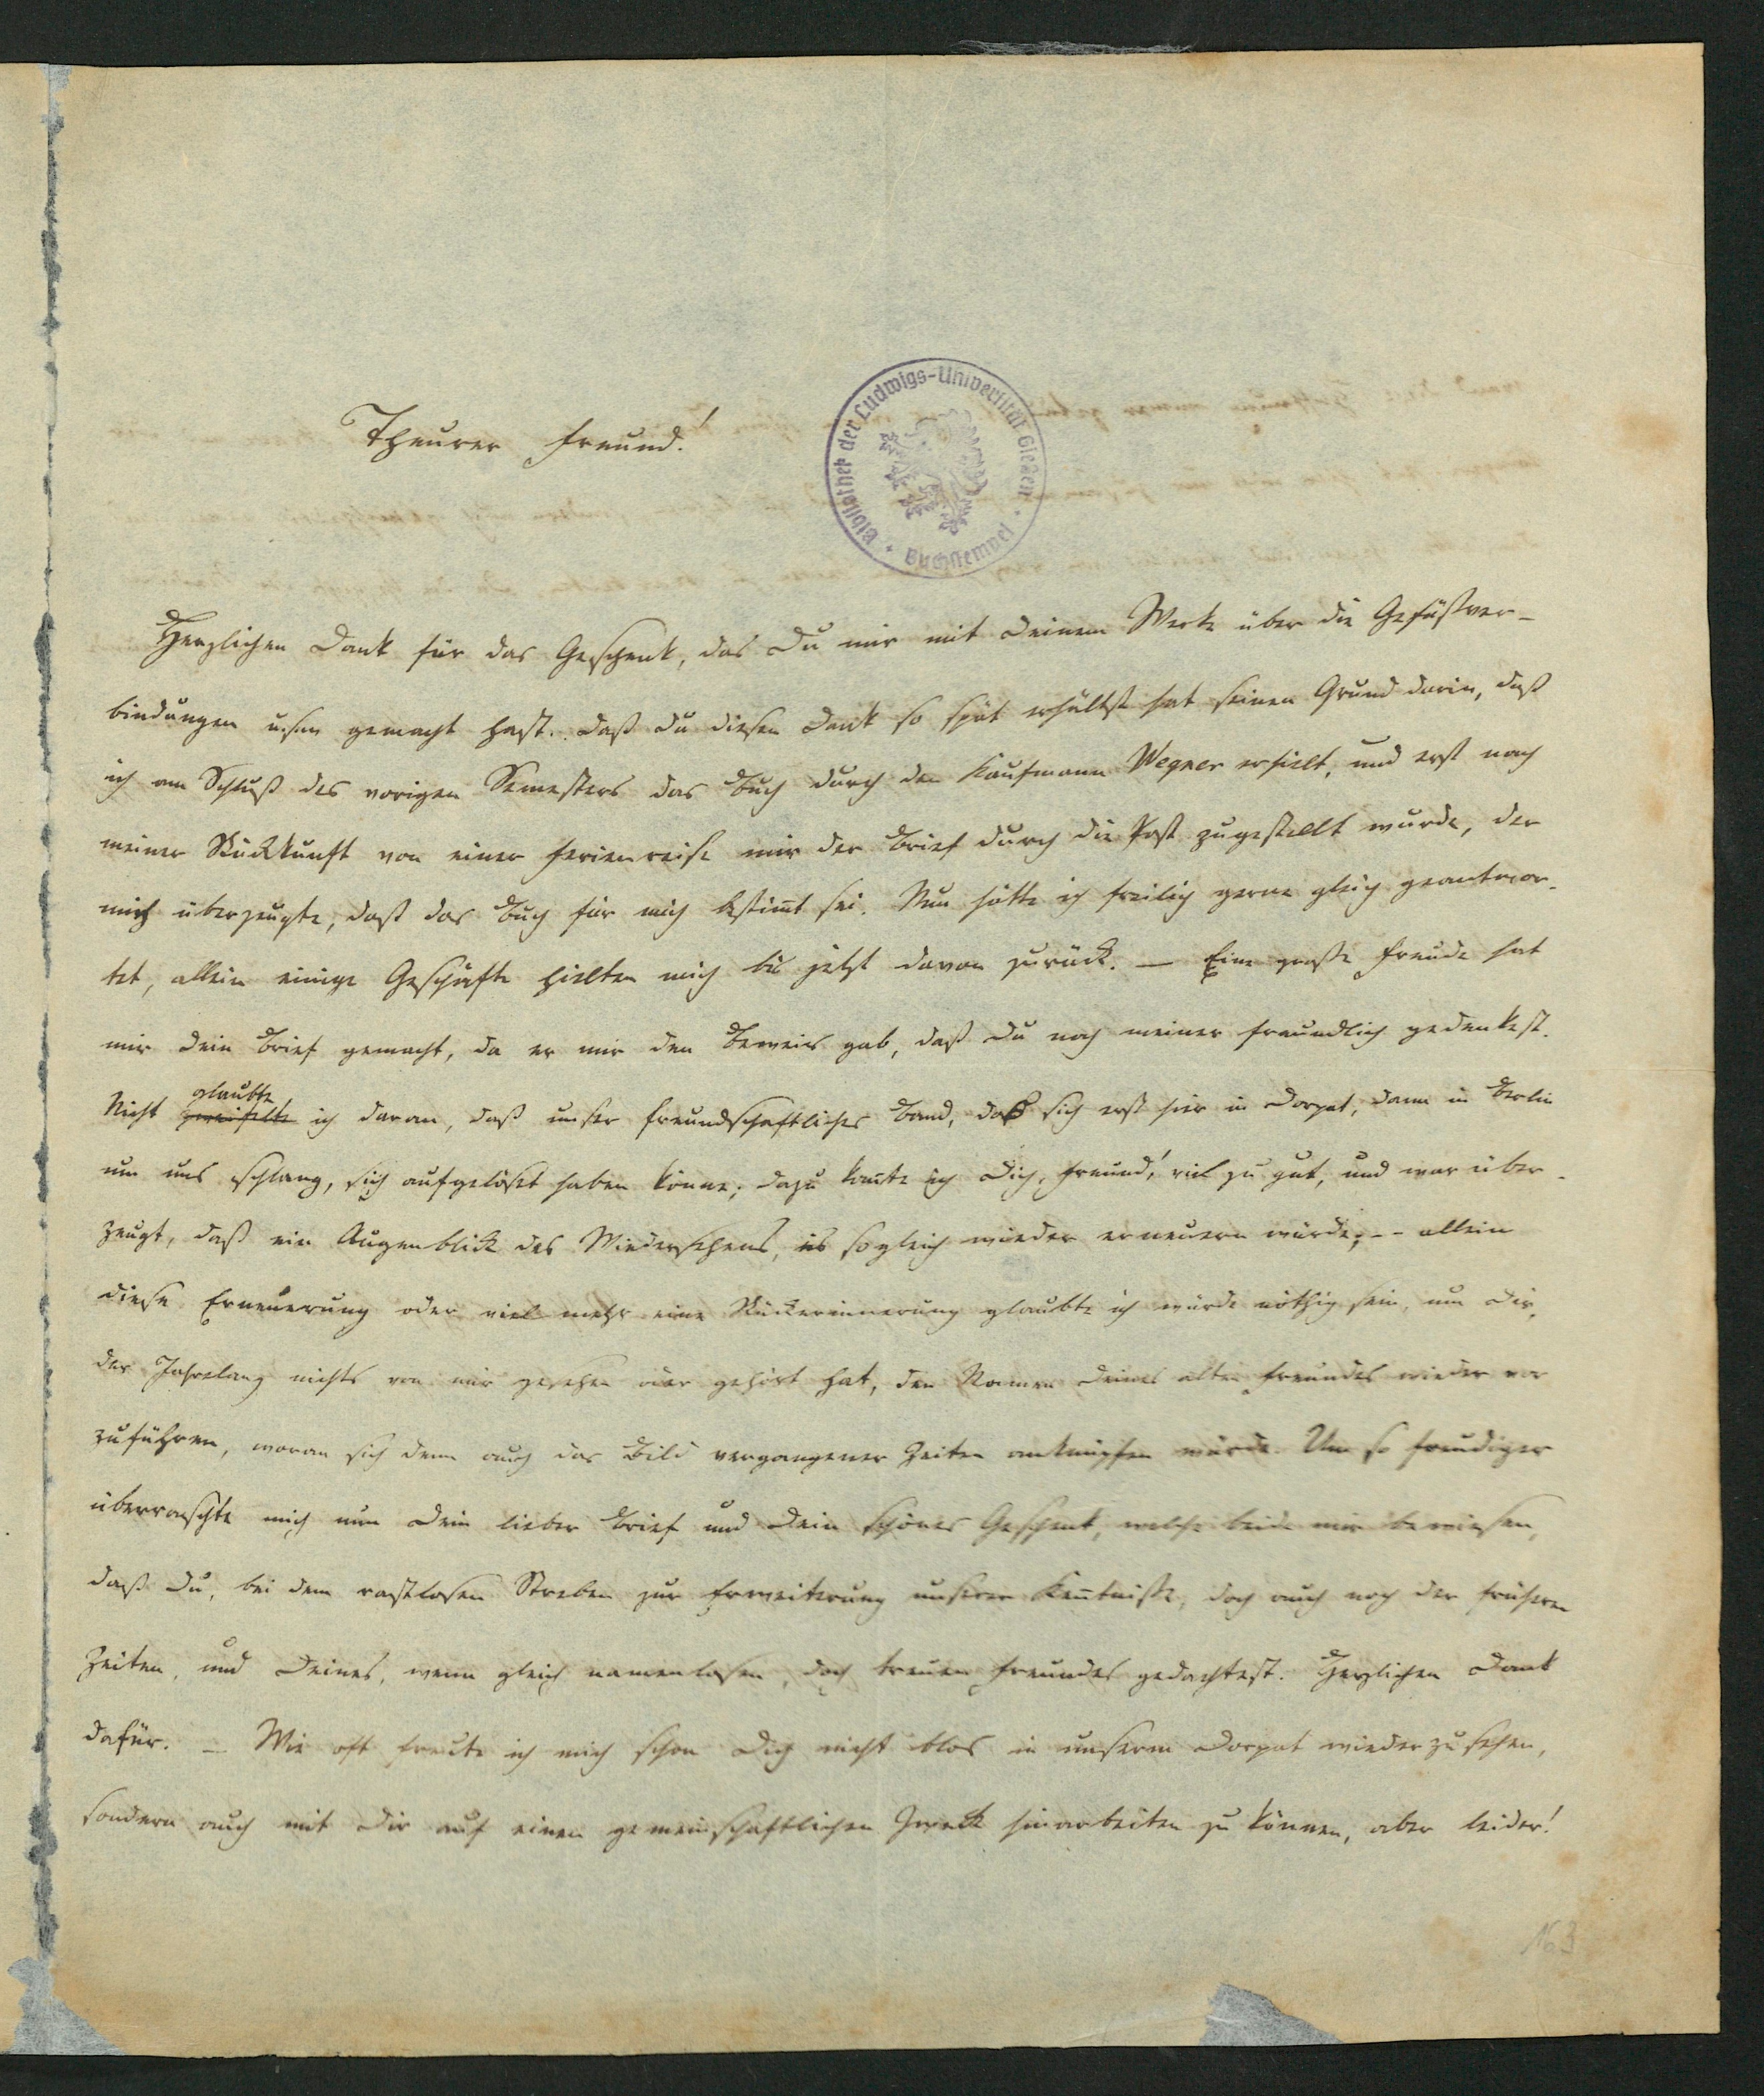 Bibliothek der Ludwigs-Universität Gießen · Buchstempel ·
Theurer Freund!
Herzlichen Dank für das Geschenk, das Du mir mit Deinem Werke über die Gefäßver-
bindungen u.s.w. gemacht hast. Daß du diesen Dank so spät erhältst hat seinen Grund darin, daß
ich am Schluß des vorigen Semesters das Buch durch den Kaufmann Wegner erhielt, und erst nach
meiner Rückkunft von einer Ferienreise mir der Brief durch die Post zugestellt wurde, der
mich überzeugte, daß das Buch für mich bestimt sei. Nun hätte ich freilich gerne gleich geantwor-
tet, allein einige Geschäfte hielten mich bis jetzt davon zurück. — Eine große Freude hat
mir Dein Brief gemacht, da er mir den Beweis gab, daß Du noch meiner freundlich gedenkest.
Nicht zweifelte glaubte ich daran, daß unser freundschaftliches Band, das sich erst hier in Dorpat, dann in Berlin
um uns schlang, sich aufgelöset haben könne; dazu kante ich Dich, Freund! viel zu gut, und war über-
zeugt, daß ein Augenblick des Wiedersehens, es sogleich wieder erneuern würde; -- allein
diese Erneuerung oder viel mehr eine Rückerinnerung glaubte ich würde nöthig sein, um Dir,
der Jahrelang nichts von mir gesehen oder gehört hat, den Namen Deines alten Freundes wieder vor
zuführen, woran sich dann auch das Bild vergangener Zeiten anknüpfen würde. Um so freudiger
überraschte mich nun Dein lieber Brief und Dein schönes Geschenk, welche beide mir bewiesen,
daß Du, bei dem rastlosen Streben zur Erweiterung unserer Kentniße, doch auch noch der früheren
Zeiten, und Deines, wenn gleich namenlosen, doch treuen Freundes gedachtest. Herzlichen Dank
dafür. — Wie oft freute ich mich schon Dich nicht blos in unserem Dorpat wiederzusehen,
sondern auch mit Dir auf einen gemeinschaftlichen Zweck hinarbeiten zu können, aber leider!